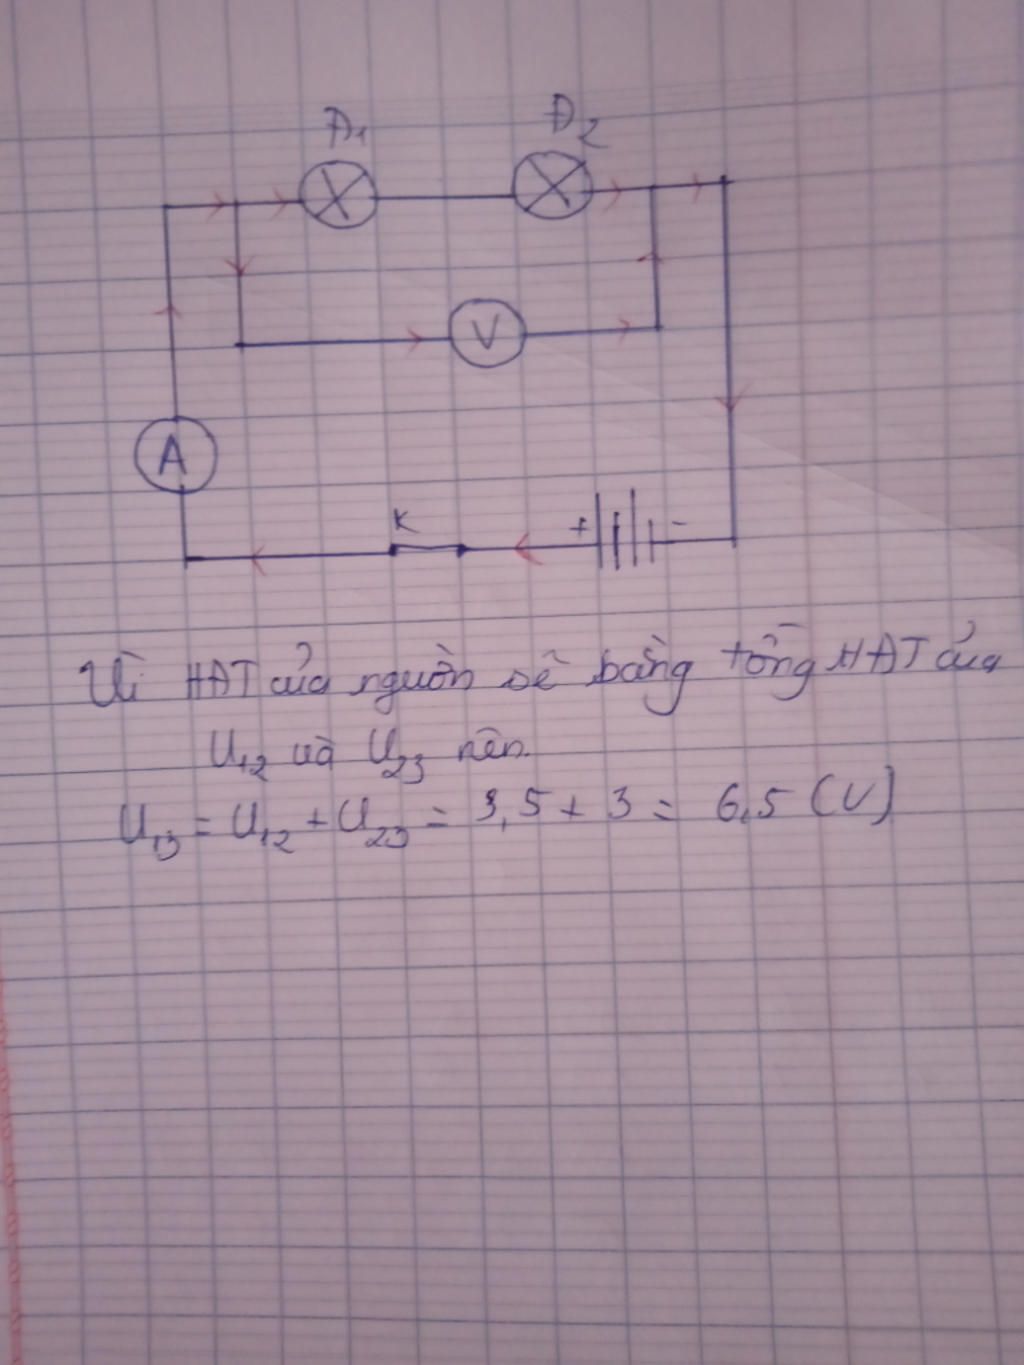 Đ1 Đ2
V
A
K
+ -
Vì HĐT của nguồn sẽ bằng tổng HĐT của
U12 và U23 nên.
U13 = U12 + U23 = 3,5 + 3 = 6,5 (V)